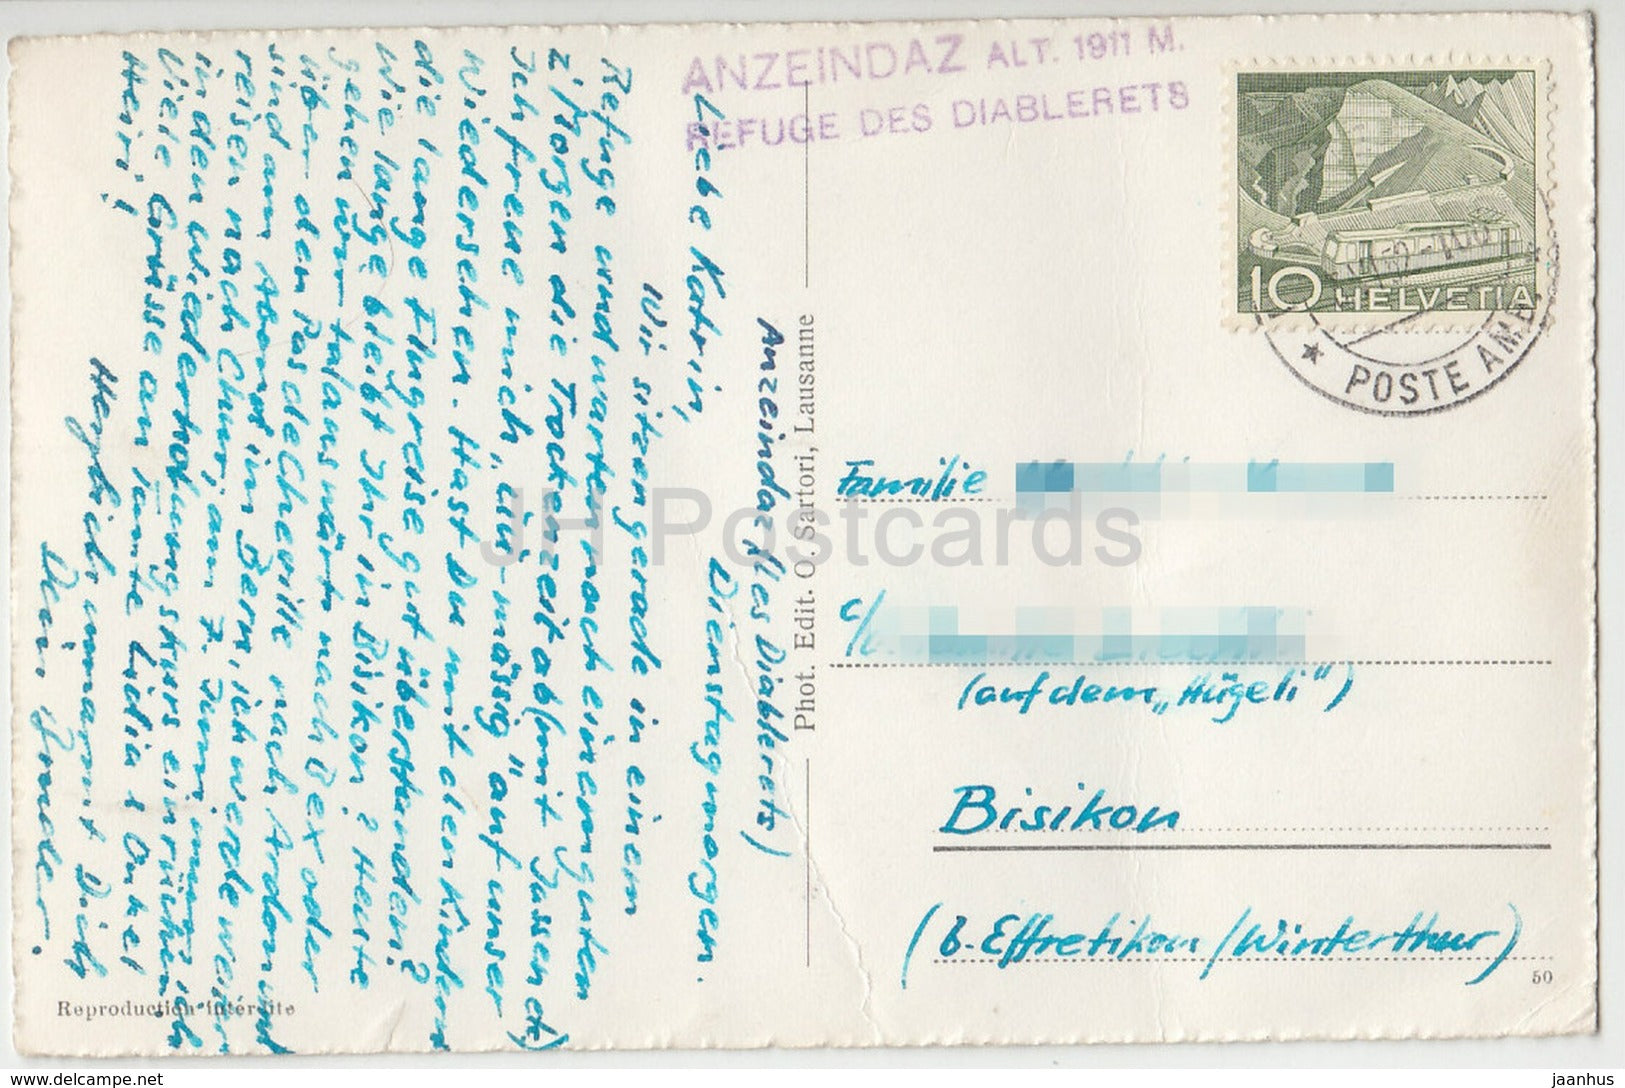 ANZEINDAZ ALT. 1911 M.
REFUGE DES DIABLERETS
10 HELVETIA
POSTE AMB
Anzeindaz (Les Diablerets)
Dienstagmorgen.
Liebe Katrin,
Wir sitzen gerade in einem
Refuge und warten nach einem guten
z'Morgen die Trockenzeit ab (mit Jassen etc)
Ich freue mich „Lin-mässig" auf unser
Wiedersehen. Hast Du mit den Kindern
die lange Flugreise gut überstanden?
Wie lange bleibt Ihr in Bisikon? Heute
gehen wir talauswärts nach Bex oder
über den Pas de Cheville nach Ardon und
sind am Abend in Bern, ich werde weiter
reisen nach Chur, am 7. Juni muss ich
in den Wiederholungskurs einrücken
Viele Grüsse an Tante Lidia & Onkel
Heiri!
Herzlich umarmt Dich
Dein Bruder.
Phot. Edit. O. Sartori, Lausanne
Familie
c/o
(auf dem „Hügeli")
Bisikon
(b. Effretikon / Winterthur)
50
Reproduction interdite
JH Postcards
delcampe.net
jaanhus